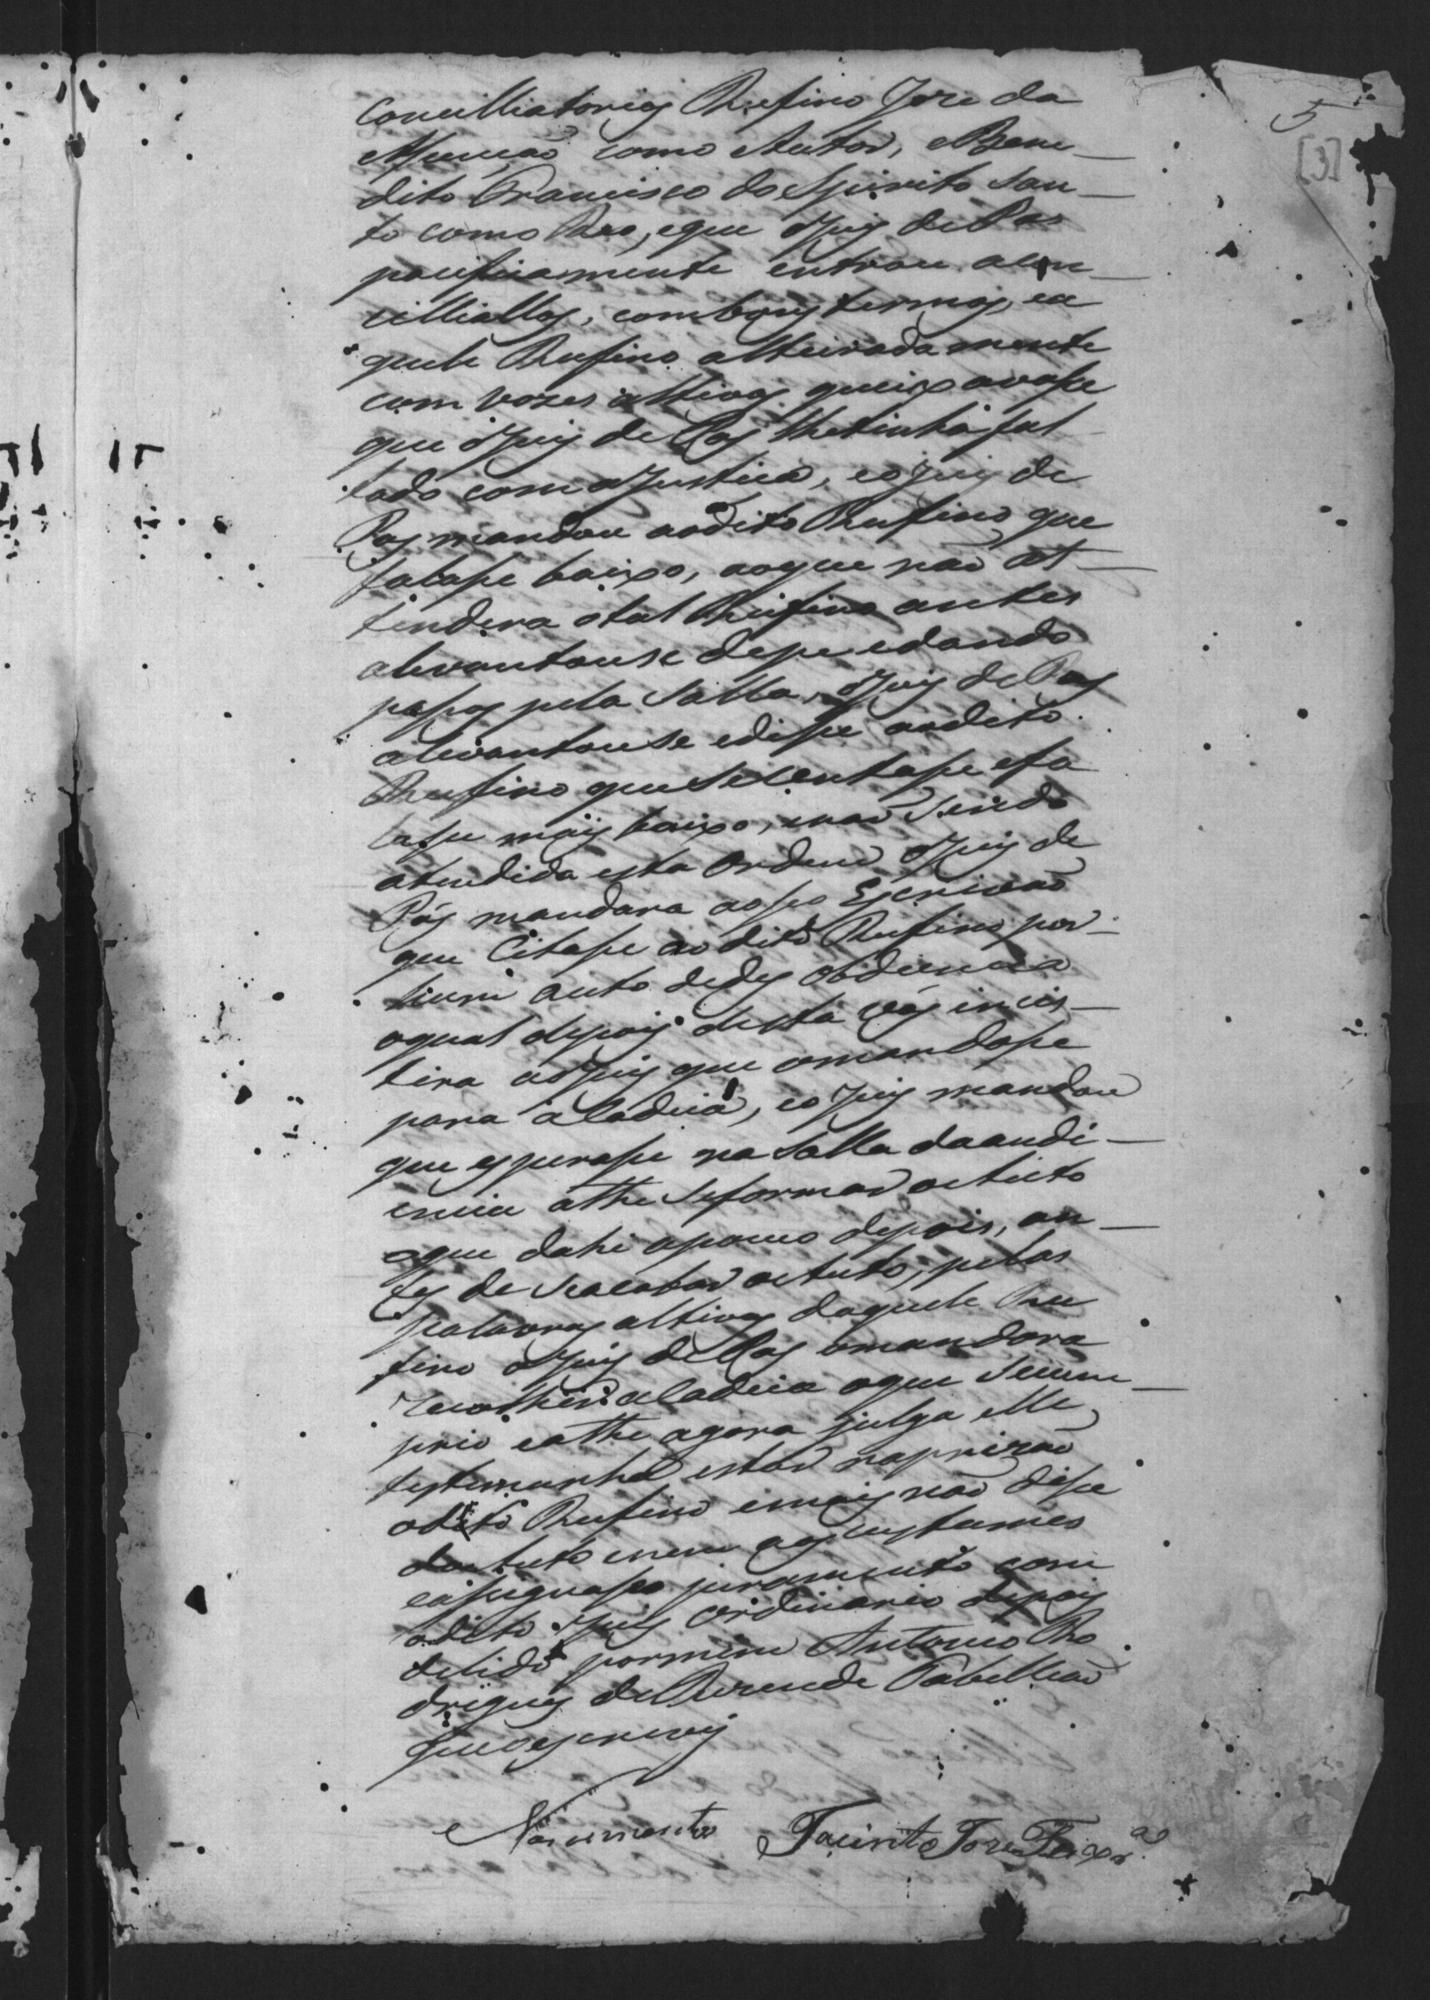 5
[3]
Conçilliatorios Rufino Joze da
Assumçaõ como Autor, e Bene-
dito Francisco do Spirito San-
to como Reo, eque oJuis de Pas
pacificamente entrou acon-
cilliallos, combons termos, ea
quele Rufino alteirada mente
com vozes altivas queixavase
que oJuis de Pas lhetinha fal
tado com aJustica, eoJuis de
Pas mandou aodito Rufino que
falase baixo, aoque naõ at-
tendera otal Rufino antes
alevantouse depe edando
pasos pela Salla, oJuis de Pas
alevantouse edise aodito
Rufino que Secentase efa
lase mais baixo, enaõ Sendo
atendida esta Ordem oJuis de
Pas mandara aoseo Escrivaõ
que Citase ao dito Rufino por
hum auto dedes obdiencia
oqual depois desta vós incis-
tira aoJuis que omandase
para aCadeia, eoJuis mandou
que esperase na Salla daaudi-
encia athe Seformar oAuto
eque dahi apouco depois, an-
tes de Seacabar oAuto, pelas
palavras altivas daquele Ru
fino oJuis de Pas omandara
recolher aCadeia oque Secum-
prio eathe agora julga elle
testemunha estar naprizaõ
odito Rufino emais naõ dise
doAuto enem aoscustumes
easignaseo juramento com
odito Juis Ordinario depois
delido pormim Antonio Ro
drigues de Rezende Tabelliaõ
que oescrevi
Nascimento Jacinto Joze Teixr.ª